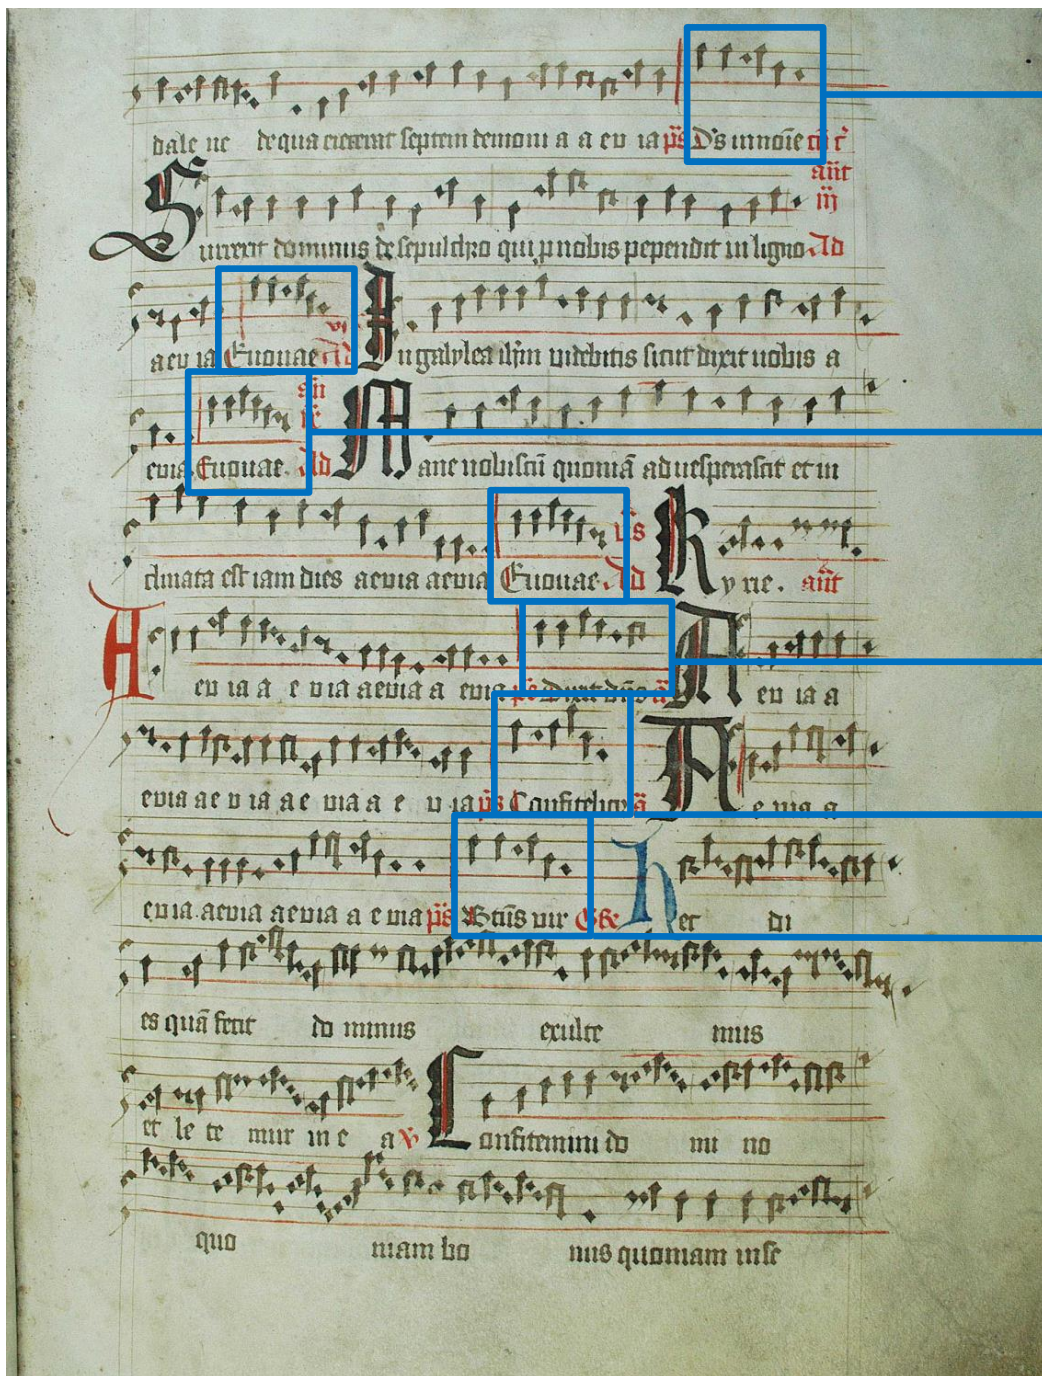 dale ne de qua eiecerat septem demoni a a eu ia ps Ds in noie
ant
iij
Surrexit dominus de sepulchro qui p nobis pependit in ligno Ad
aeu ia Euouae Ad In galylea ihm videbitis sicut dixit uobis a
euia Euouae Ad Mane nobiscū quoniā aduesperascit et in
clinata est iam dies aeuia aeuia Euouae Ad Kyrie. ant
A eu ia a e uia aeuia a euia ps Dixit dns a A eu ia a
euia ae u ia a e uia a e u ia ps Confitebor a A e uia a
euia aeuia aeuia a e uia ps Btus uir Gr Hec di
es quā fecit do minus exulte mus
et le te mur in e a v Confitemini do mi no
quo niam bo nus quoniam in se